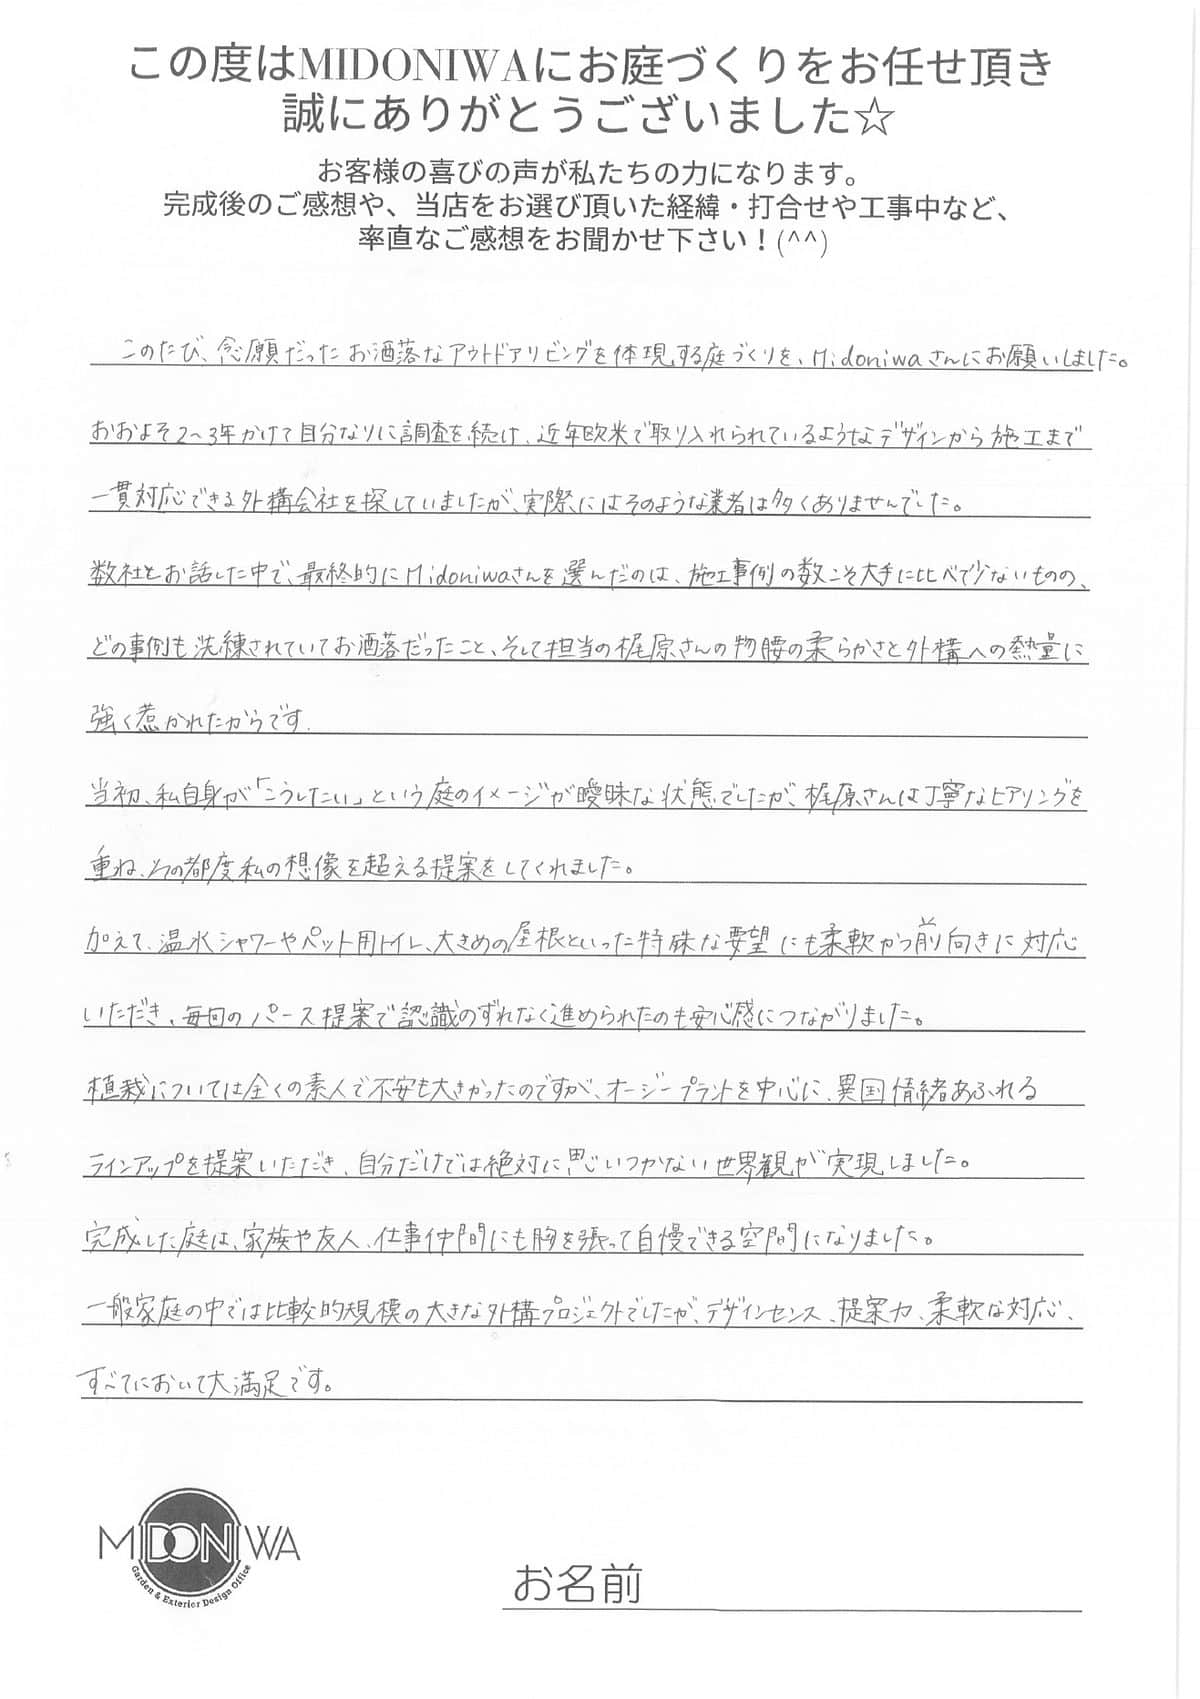 この度はMIDONIWAにお庭づくりをお任せ頂き
誠にありがとうございました☆
お客様の喜びの声が私たちの力になります。
完成後のご感想や、当店をお選び頂いた経緯・打合せや工事中など、
率直なご感想をお聞かせ下さい！(^^)
このたび、念願だったお洒落なアウトドアリビングを体現する庭づくりを、Midoniwaさんにお願いしました。
おおよそ2〜3年かけて自分なりに調査を続け、近年欧米で取り入れられているようなデザインから施工まで
一貫対応できる外構会社を探していましたが、実際にはそのような業者は多くありませんでした。
数社とお話した中で、最終的にMidoniwaさんを選んだのは、施工事例の数こそ大手に比べて少ないものの、
どの事例も洗練されていてお洒落だったこと、そして担当の梶原さんの物腰の柔らかさと外構への熱量に
強く惹かれたからです.
当初、私自身が「こうしたい」という庭のイメージが曖昧な状態でしたが、梶原さんは丁寧なヒアリングを
重ね、その都度私の想像を超える提案をしてくれました。
加えて、温水シャワーやペット用トイレ、大きめの屋根といった特殊な要望にも柔軟かつ前向きに対応
いただき、毎回のパース提案で認識のずれなく進められたのも安心感につながりました。
植栽については全くの素人で不安も大きかったのですが、オージープラントを中心に、異国情緒あふれる
ラインアップを提案いただき、自分だけでは絶対に思いつかない世界観が実現しました。
完成した庭は、家族や友人、仕事仲間にも胸を張って自慢できる空間になりました。
一般家庭の中では比較的規模の大きな外構プロジェクトでしたが、デザインセンス、提案力、柔軟な対応、
すべてにおいて大満足です。
MIDONIWA
Garden & Exterior Design Office
お名前